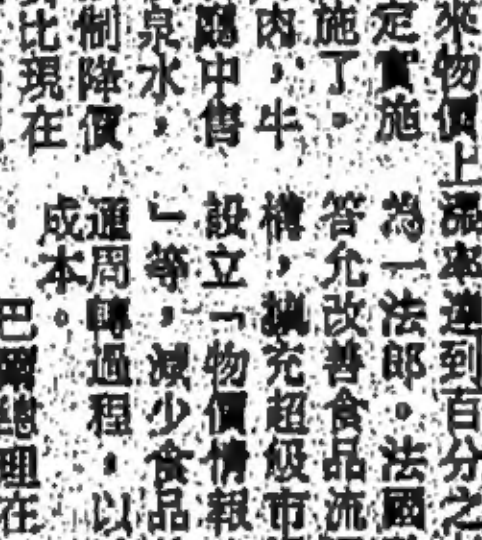 來物價上漲率達到百分之
定實施
施了。
肉，牛
廳中售
泉水，
制降價
比現在
為一法郎。法國
答允改善食品流
構，擴充超級市
設立「物價情報
」等，減少食品
通周轉過程，以
成本。
巴爾總理在